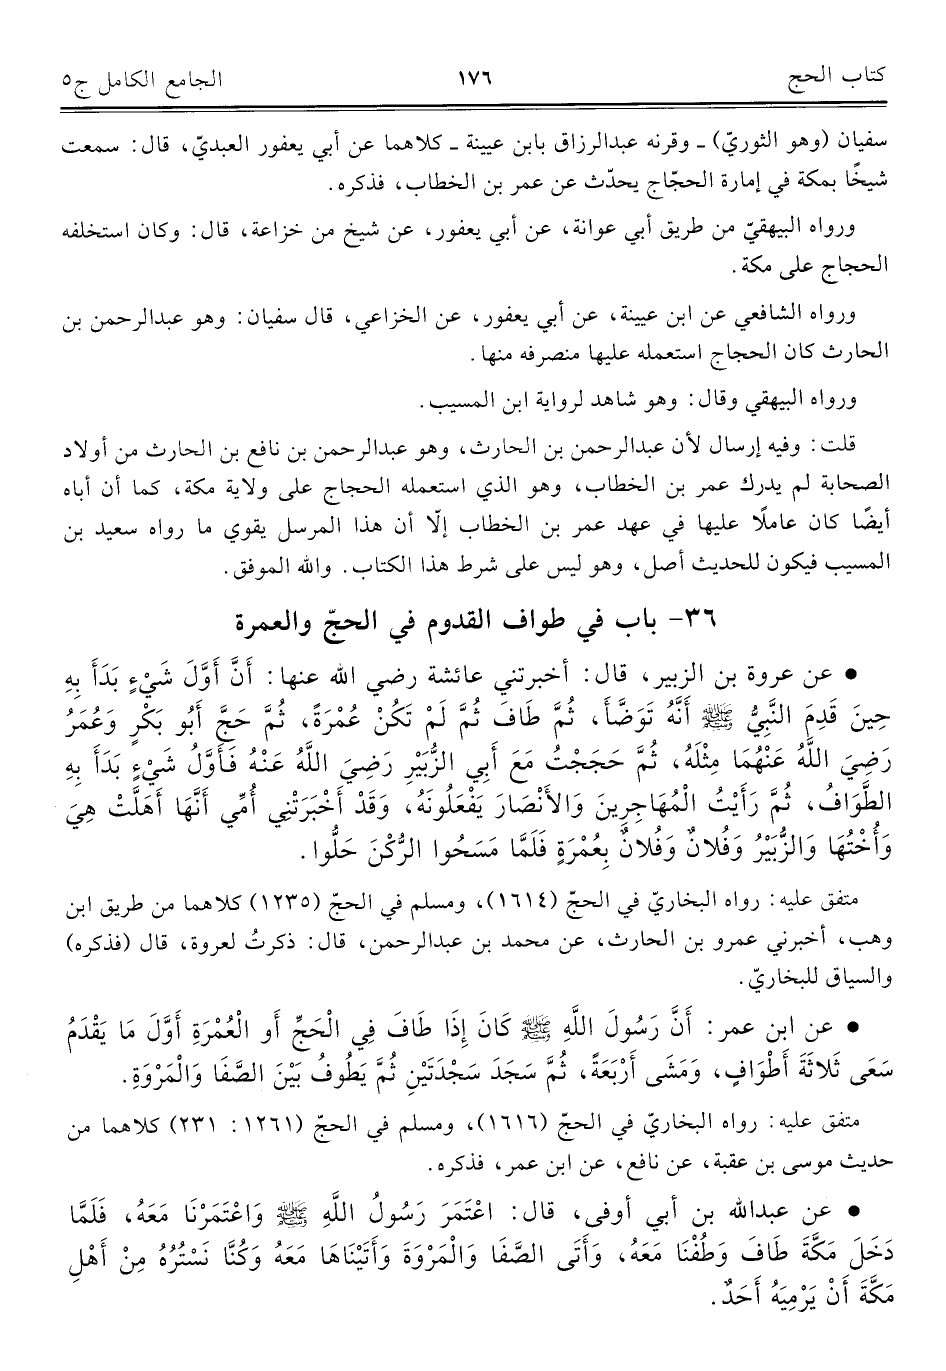 كتاب الحج ١٧٦ الجامع الكامل ج٥
سفيان (وهو الثوريّ) ـ وقرنه عبدالرزاق بابن عيينة ـ كلاهما عن أبي يعفور العبديّ، قال: سمعت
شيخًا بمكة في إمارة الحجّاج يحدّث عن عمر بن الخطاب، فذكره.
ورواه البيهقيّ من طريق أبي عوانة، عن أبي يعفور، عن شيخ من خزاعة، قال: وكان استخلفه
الحجاج على مكة.
ورواه الشافعي عن ابن عيينة، عن أبي يعفور، عن الخزاعي، قال سفيان: وهو عبدالرحمن بن
الحارث كان الحجاج استعمله عليها منصرفه منها.
ورواه البيهقي وقال: وهو شاهد لرواية ابن المسيب.
قلت: وفيه إرسال لأن عبدالرحمن بن الحارث، وهو عبدالرحمن بن نافع بن الحارث من أولاد
الصحابة لم يدرك عمر بن الخطاب، وهو الذي استعمله الحجاج على ولاية مكة، كما أن أباه
أيضًا كان عاملًا عليها في عهد عمر بن الخطاب إلّا أن هذا المرسل يقوي ما رواه سعيد بن
المسيب فيكون للحديث أصل، وهو ليس على شرط هذا الكتاب. والله الموفق.
٣٦- باب في طواف القدوم في الحجّ والعمرة
● عن عروة بن الزبير، قال: أخبرتني عائشة رضي الله عنها: أَنَّ أَوَّلَ شَيْءٍ بَدَأَ بِهِ
حِينَ قَدِمَ النَّبِيُّ ﷺ أَنَّهُ تَوَضَّأَ، ثُمَّ طَافَ ثُمَّ لَمْ تَكُنْ عُمْرَةً، ثُمَّ حَجَّ أَبُو بَكْرٍ وَعُمَرُ
رَضِيَ اللَّهُ عَنْهُمَا مِثْلَهُ، ثُمَّ حَجَجْتُ مَعَ أَبِي الزُّبَيْرِ رَضِيَ اللَّهُ عَنْهُ فَأَوَّلُ شَيْءٍ بَدَأَ بِهِ
الطَّوَافُ، ثُمَّ رَأَيْتُ الْمُهَاجِرِينَ وَالأَنْصَارَ يَفْعَلُونَهُ، وَقَدْ أَخْبَرَتْنِي أُمِّي أَنَّهَا أَهَلَّتْ هِيَ
وَأُخْتُهَا وَالزُّبَيْرُ وَفُلانٌ وَفُلانٌ بِعُمْرَةٍ فَلَمَّا مَسَحُوا الرُّكْنَ حَلُّوا.
متفق عليه: رواه البخاريّ في الحجّ (١٦١٤)، ومسلم في الحجّ (١٢٣٥) كلاهما من طريق ابن
وهب، أخبرني عمرو بن الحارث، عن محمد بن عبدالرحمن، قال: ذكرتُ لعروة، قال (فذكره)
والسياق للبخاريّ.
● عن ابن عمر: أَنَّ رَسُولَ اللَّهِ ﷺ كَانَ إِذَا طَافَ فِي الْحَجِّ أَو الْعُمْرَةِ أَوَّلَ مَا يَقْدَمُ
سَعَى ثَلاثَةَ أَطْوَافٍ، وَمَشَى أَرْبَعَةً، ثُمَّ سَجَدَ سَجْدَتَيْنِ ثُمَّ يَطُوفُ بَيْنَ الصَّفَا وَالْمَرْوَةِ.
متفق عليه: رواه البخاريّ في الحجّ (١٦١٦)، ومسلم في الحجّ (١٢٦١: ٢٣١) كلاهما من
حديث موسى بن عقبة، عن نافع، عن ابن عمر، فذكره.
● عن عبدالله بن أبي أوفى، قال: اعْتَمَرَ رَسُولُ اللَّهِ ﷺ وَاعْتَمَرْنَا مَعَهُ، فَلَمَّا
دَخَلَ مَكَّةَ طَافَ وَطُفْنَا مَعَهُ، وَأَتَى الصَّفَا وَالْمَرْوَةَ وَأَتَيْنَاهَا مَعَهُ وَكُنَّا نَسْتُرُهُ مِنْ أَهْلِ
مَكَّةَ أَنْ يَرْمِيَهُ أَحَدٌ.